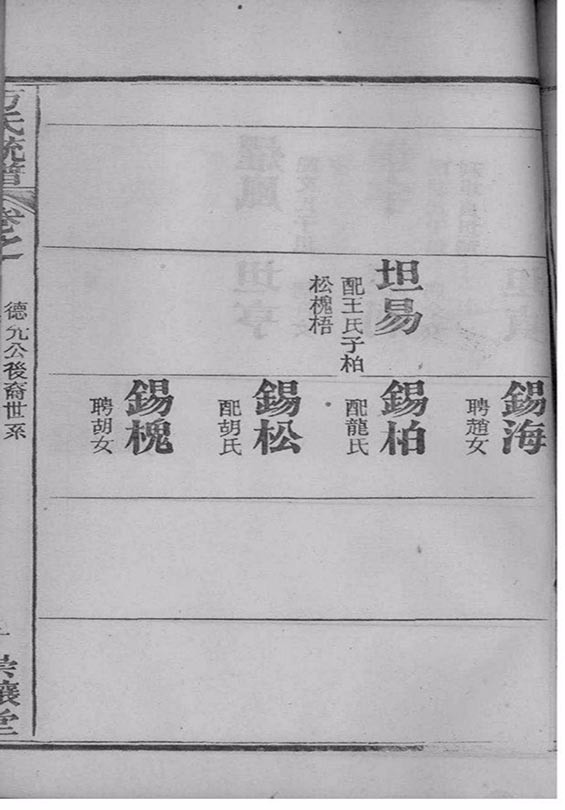 坦易
配王氏子柏
松槐梧
錫海
聘趙女
錫柏
配龍氏
錫松
配胡氏
錫槐
聘胡女
氏統譜
卷之
德允公後裔世系